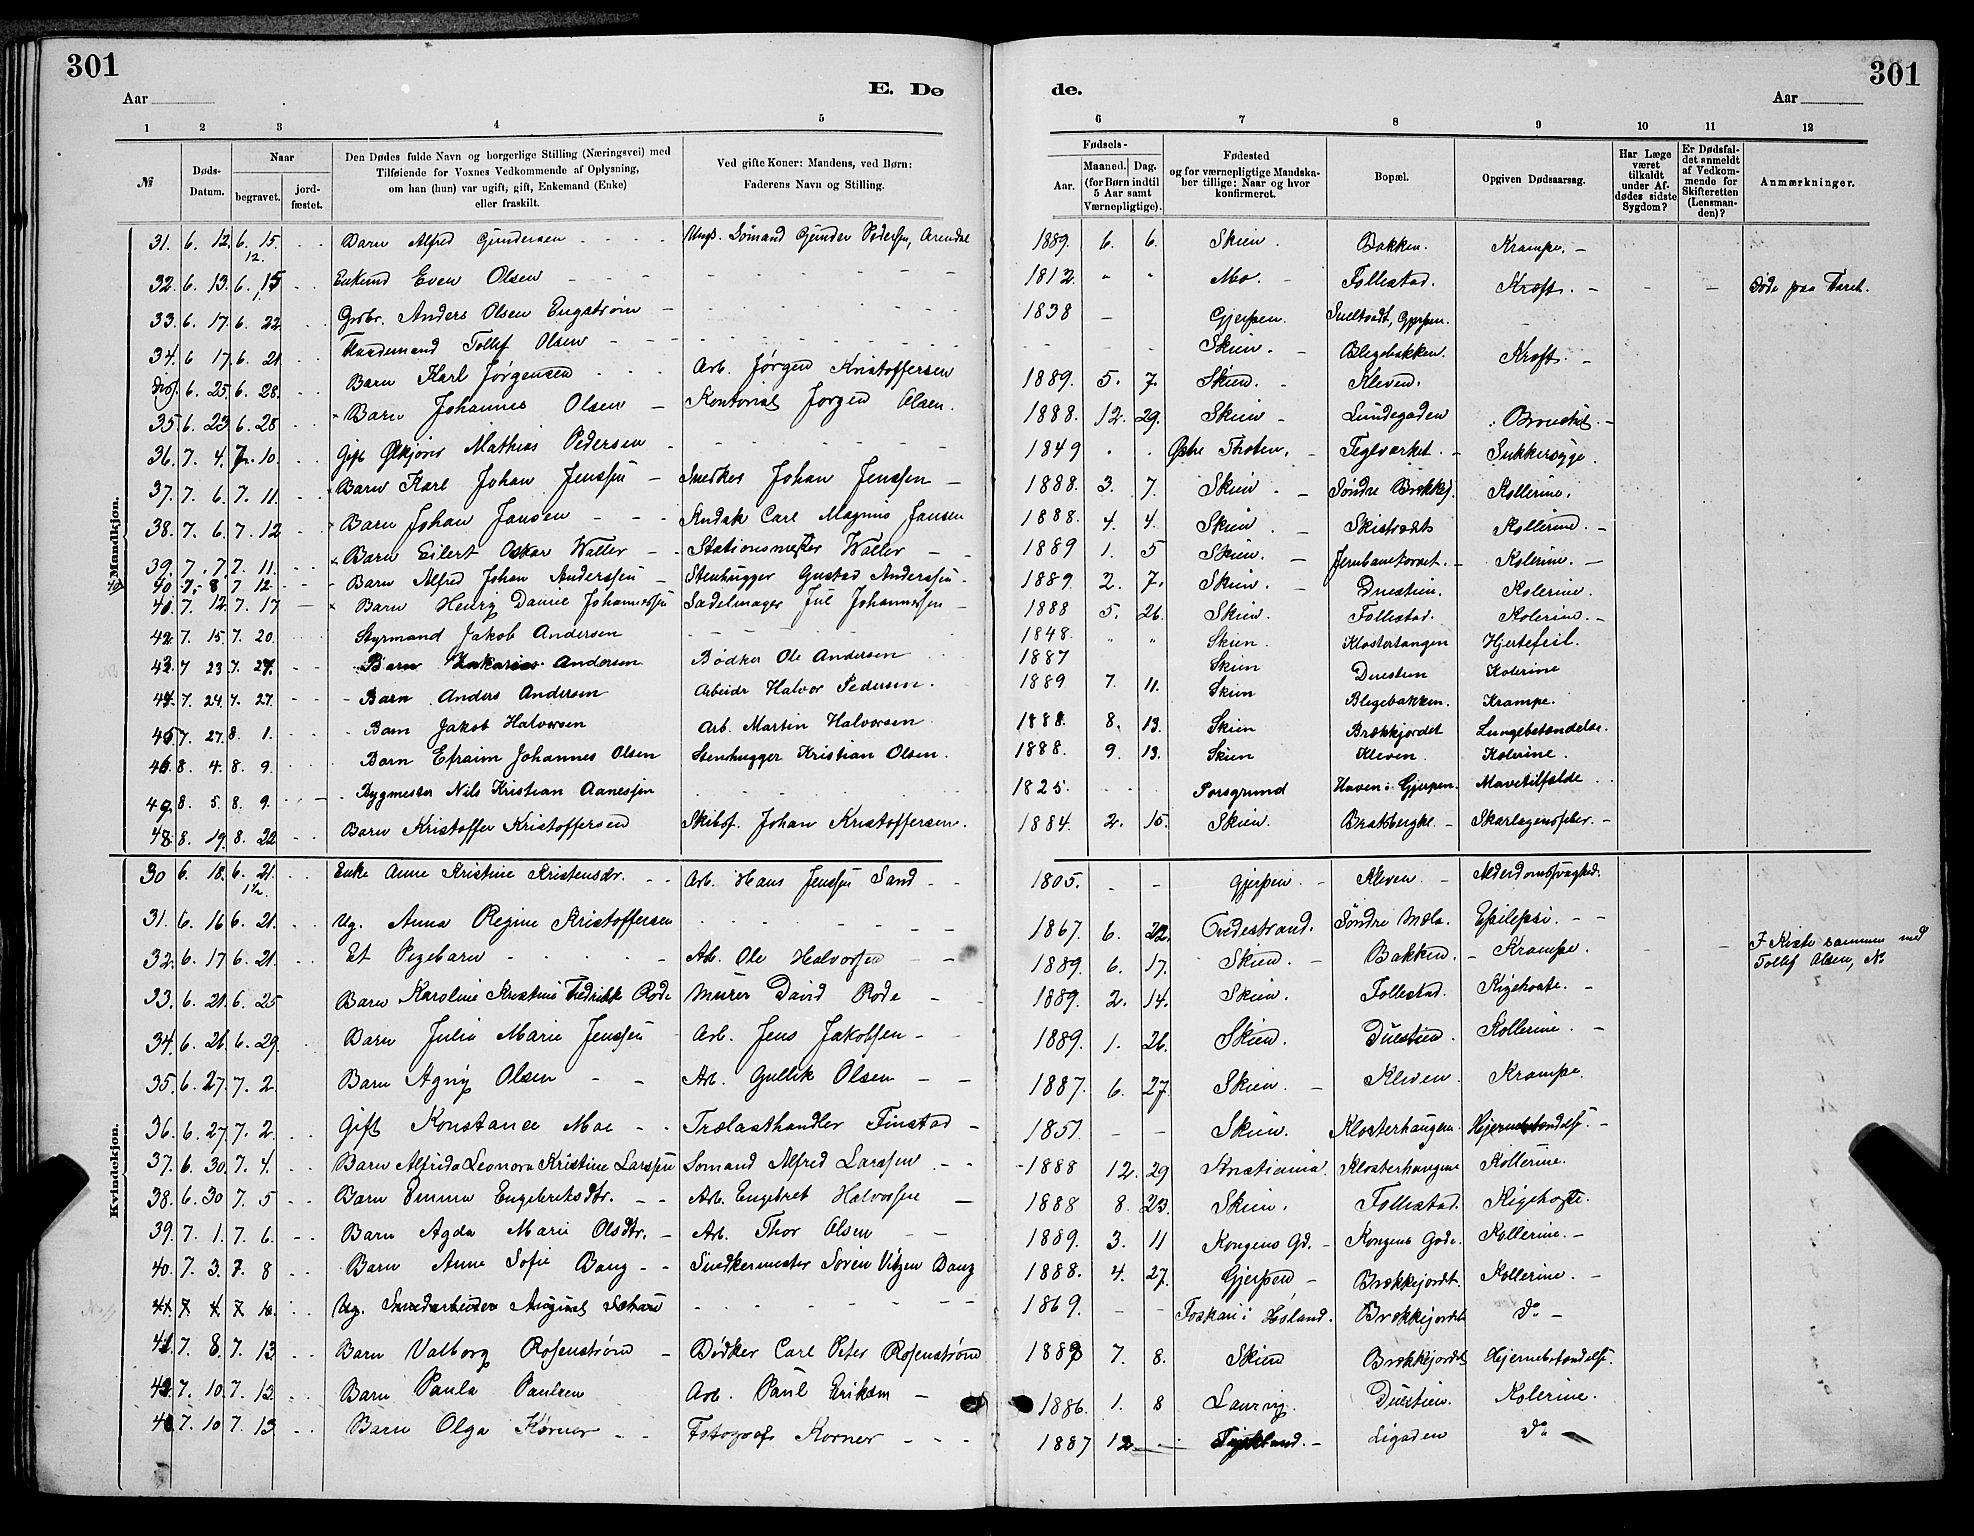 301
301
Aar
E. Dø
de.
Aar
1 2 3 4 5 6 7 8 9 10 11 12
№
Døds-Datum.
Naar
begravet.
jord-fæstet.
Den Dødes fulde Navn og borgerlige Stilling (Næringsvei) med
Tilføiende for Voxnes Vedkommende af Oplysning,
om han (hun) var ugift, gift, Enkemand (Enke)
eller fraskilt.
Ved gifte Koner: Mandens, ved Børn:
Faderens Navn og Stilling.
Fødsels-
Aar. Maaned. Dag.
(for Børn indtil
5 Aar samt
Værnepligtige).
Fødested
og for værnepligtige Mandska-
ber tillige: Naar og hvor
konfirmeret.
Bopæl.
Opgiven Dødsaarsag.
Har Læge
været
tilkaldt
under Af-
dødes sidste
Sygdom?
Er Dødsfal-
det anmeldt
af Vedkom-
mende for
Skifteretten
(Lensman-
den)?
Anmærkninger.
Mandkjøn.
31. 6. 12. 6. 15. Barn Alfred Gundersen Ungk. Sømand Gunder Pedersen, Arendal 1889. 6. 6. Skien. Bakken. Krampe.
32. 6. 13. 6. 15 Enkemd Even Olsen 1812. " " Mo. Follestad. Kræft. Døde paa Farek.
33. 6. 17. 6. 22 Grbr. Anders Olsen Engstrøm 1838 Gjerpen. Gjerpen.
34. 6 17. 6. 21. Tollef Olsen Skien. Blegebakken. Kræft.
6. 25. 6. 28. Barn Karl Jørgensen Arb. Jørgen Kristoffersen 1889. 5. 7. Skien. Kleven.
35. 6. 23 6. 28 Barn Johannes Olsen Kontorist Jørgen Olsen. 1888. 12. 29. Skien Lundegaden
36. 7. 4. 7. 10. Gift Mathias Pedersen 1849 Østre Thoten. Teglværket. Sukkersyge.
37. 7. 6. 7. 11. Barn Karl Johan Jenssen Snedker Johan Jenssen 1888. 3. 7. Skien. Søndre Brekkej. Kollerine.
38. 7. 6. 7. 12 Barn Johan Jansen Carl Magnus Jansen 1888. 4. 4. Skien Skistrædet Kollerine.
39. 7. 7. 7. 11. Barn Eilert Oskar Waller Stationsmester Waller 1889 1. 5 Skien. Jernbanetorvet. Kolerine.
40 7. 8 7 12 Barn Alfred Johan Anderssen Stenhugger Gustav Anderssen 1889. 2. 7. Skien. Duestien. Kolerine.
41. 7. 12. 7. 17 Barn Henrij Daniel Johannessen Sadelmager Jul Johannessen 1888 5. 26. Skien. Follestad. Kolerine.
42. 7. 15. 7. 20. Styrmand Jakob Andersen 1848. " " Skien. Klostertangen Hjertefeil.
43 7 23 7. 27. Barn Zakarias Andersen Bødker Ole Andersen 1887 Skien Duestien Kolerine
44. 7. 24. 7. 27. Barn Anders Andersen Arbeidr Halvor Pedersen. 1889 7. 11. Skien Blegebakken. Krampe.
45 7. 27. 8. 1. Barn Jakob Halvorsen Arb. Martin Halvorsen 1888. 8. 13. Skien Brækkjordet Lungebetændelse.
46. 8. 4. 8. 9. Barn Efraim Johannes Olsen Stenhugger Kristian Olsen. 1888. 9. 13. Skien Kleven Kolerine.
47. 8. 5. 8. 9. Bygmester Nils Kristian Aanessen 1825. Porsgrund Haven i Gjerpen. Mavetilfælde
48. 8. 19. 8. 22 Barn Kristoffer Kristoffersen Skibsf. Johan Kristoffersen. 1884. 2. 15. Skien. Bratsbergkl. Skarlagensfeber.
Kvindekjøn.
30 6. 18. 6. 21. Enke Anne Kristine Kristensdr. Arb. Hans Jenssen Sand 1805. Gjerpen. Kleven. Alderdomssvaghed.
31. 6. 16 6. 21. Ug. Anna Regine Kristoffersen 1867. 6. 22. Tvedestrand. Søndre Mæla. Epilepsi.
32. 6. 17 6. 21. Et Pigebarn Arb. Ole Halvorsen 1889. 6. 17. Skien. Bakken. Krampe. I Kiste sammen med
Tollef Olsen, No
33. 6. 21 6. 25 Barn Karoline Kristine Fredrikke Rode Murer David Rode 1889. 2. 14. Skien. Follestad. Kighoste.
34. 6. 26. 6. 29. Barn Julia Marie Jenssen Arb. Jens Jakobsen 1889. 1. 26. Skien. Duestien. Kollerine.
35. 6. 27. 7. 2. Barn Agnij Olsen Arb. Gullik Olsen 1887. 6. 27. Skien. Kleven. Krampe.
36. 6. 27. 7. 2. Gift Konstance Moe Trælasthandler Finstad 1851. Skien. Klosterhaugen. Hjernebetændelse.
37. 6. 30. 7. 4. Barn Alfrida Leonora Kristine Larssen Sømand Alfred Larssen 1888 12. 29 Kristiania. Klosterhaugen Kollerine.
38. 6. 30 7. 5 Barn Emma Engebriktsdtr. Arb. Engebret Halvorsen 1888 8. 23. Skien. Follestad. Kighoste.
39. 7. 1. 7. 6. Barn Agda Marie Olsdtr. Arb. Thor Olsen 1889. 3. 11 Kongens Gd. Kongens Gade. Kollerine.
40. 7. 3. 7. 8 Barn Anne Sofie Bang Snedkermester Søren Bang 1888. 4. 27. Gjerpen Brækkejordet. Kollerine.
41 7 4 7 10. Ug. August 1869. i Høland. Brækkejordet do
41. 7. 8. 7. 13 Barn Valborg Rosenstrøm Bødker Carl Peter Rosenstrøm 7. 8. Skien Brækkejordet Hjernebetændelse.
42. 7. 10. 7. 12 Barn Paula Paulsen Arb. Paul Eriksen 1886. 1. 8 Laurvig. Duestien. Kolerine.
43. 7. 10 7. 13 Barn Olga Kørner Fotograf Kørner 1887 12 Tyskland. Ligaden do